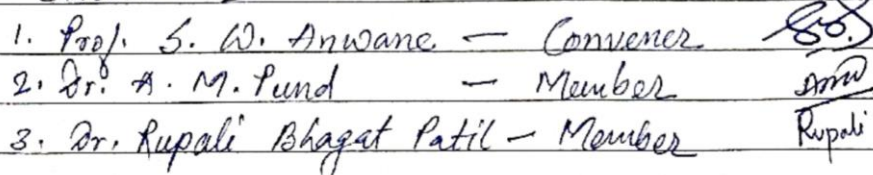 1. Prof. S. W. Anwane - Convener
2. Dr. A. M. Pund - Member
3. Dr. Rupali Bhagat Patil - Member Rupali